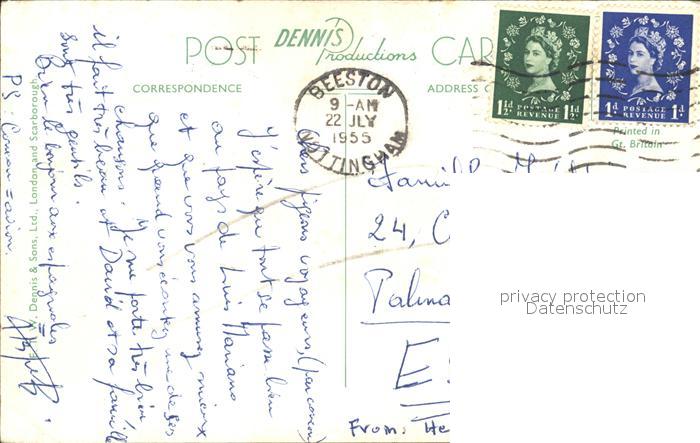 POST DENNIS Productions CARD
CORRESPONDENCE
ADDRESS
BEESTON
9-AM
22 JLY
1955
NOTTINGHAM
1½d POSTAGE REVENUE 1½d
1d POSTAGE REVENUE 1d
Printed in
Gt. Britain
W. Dennis & Sons, Ltd., London and Scarborough
voyageurs, (par avion)
J'espère que tout se passe bien
au pays de Luis Mariano
et que vous vous amusez mieux
que quand vous écoutez une de ses
chansons. Je me porte très bien
il fait très beau et David et sa famille
sont très gentils.
Bien le bonjour aux espagnoles
PS: Coman = avion.
24, C
Palma
E
From: He
privacy protection
Datenschutz